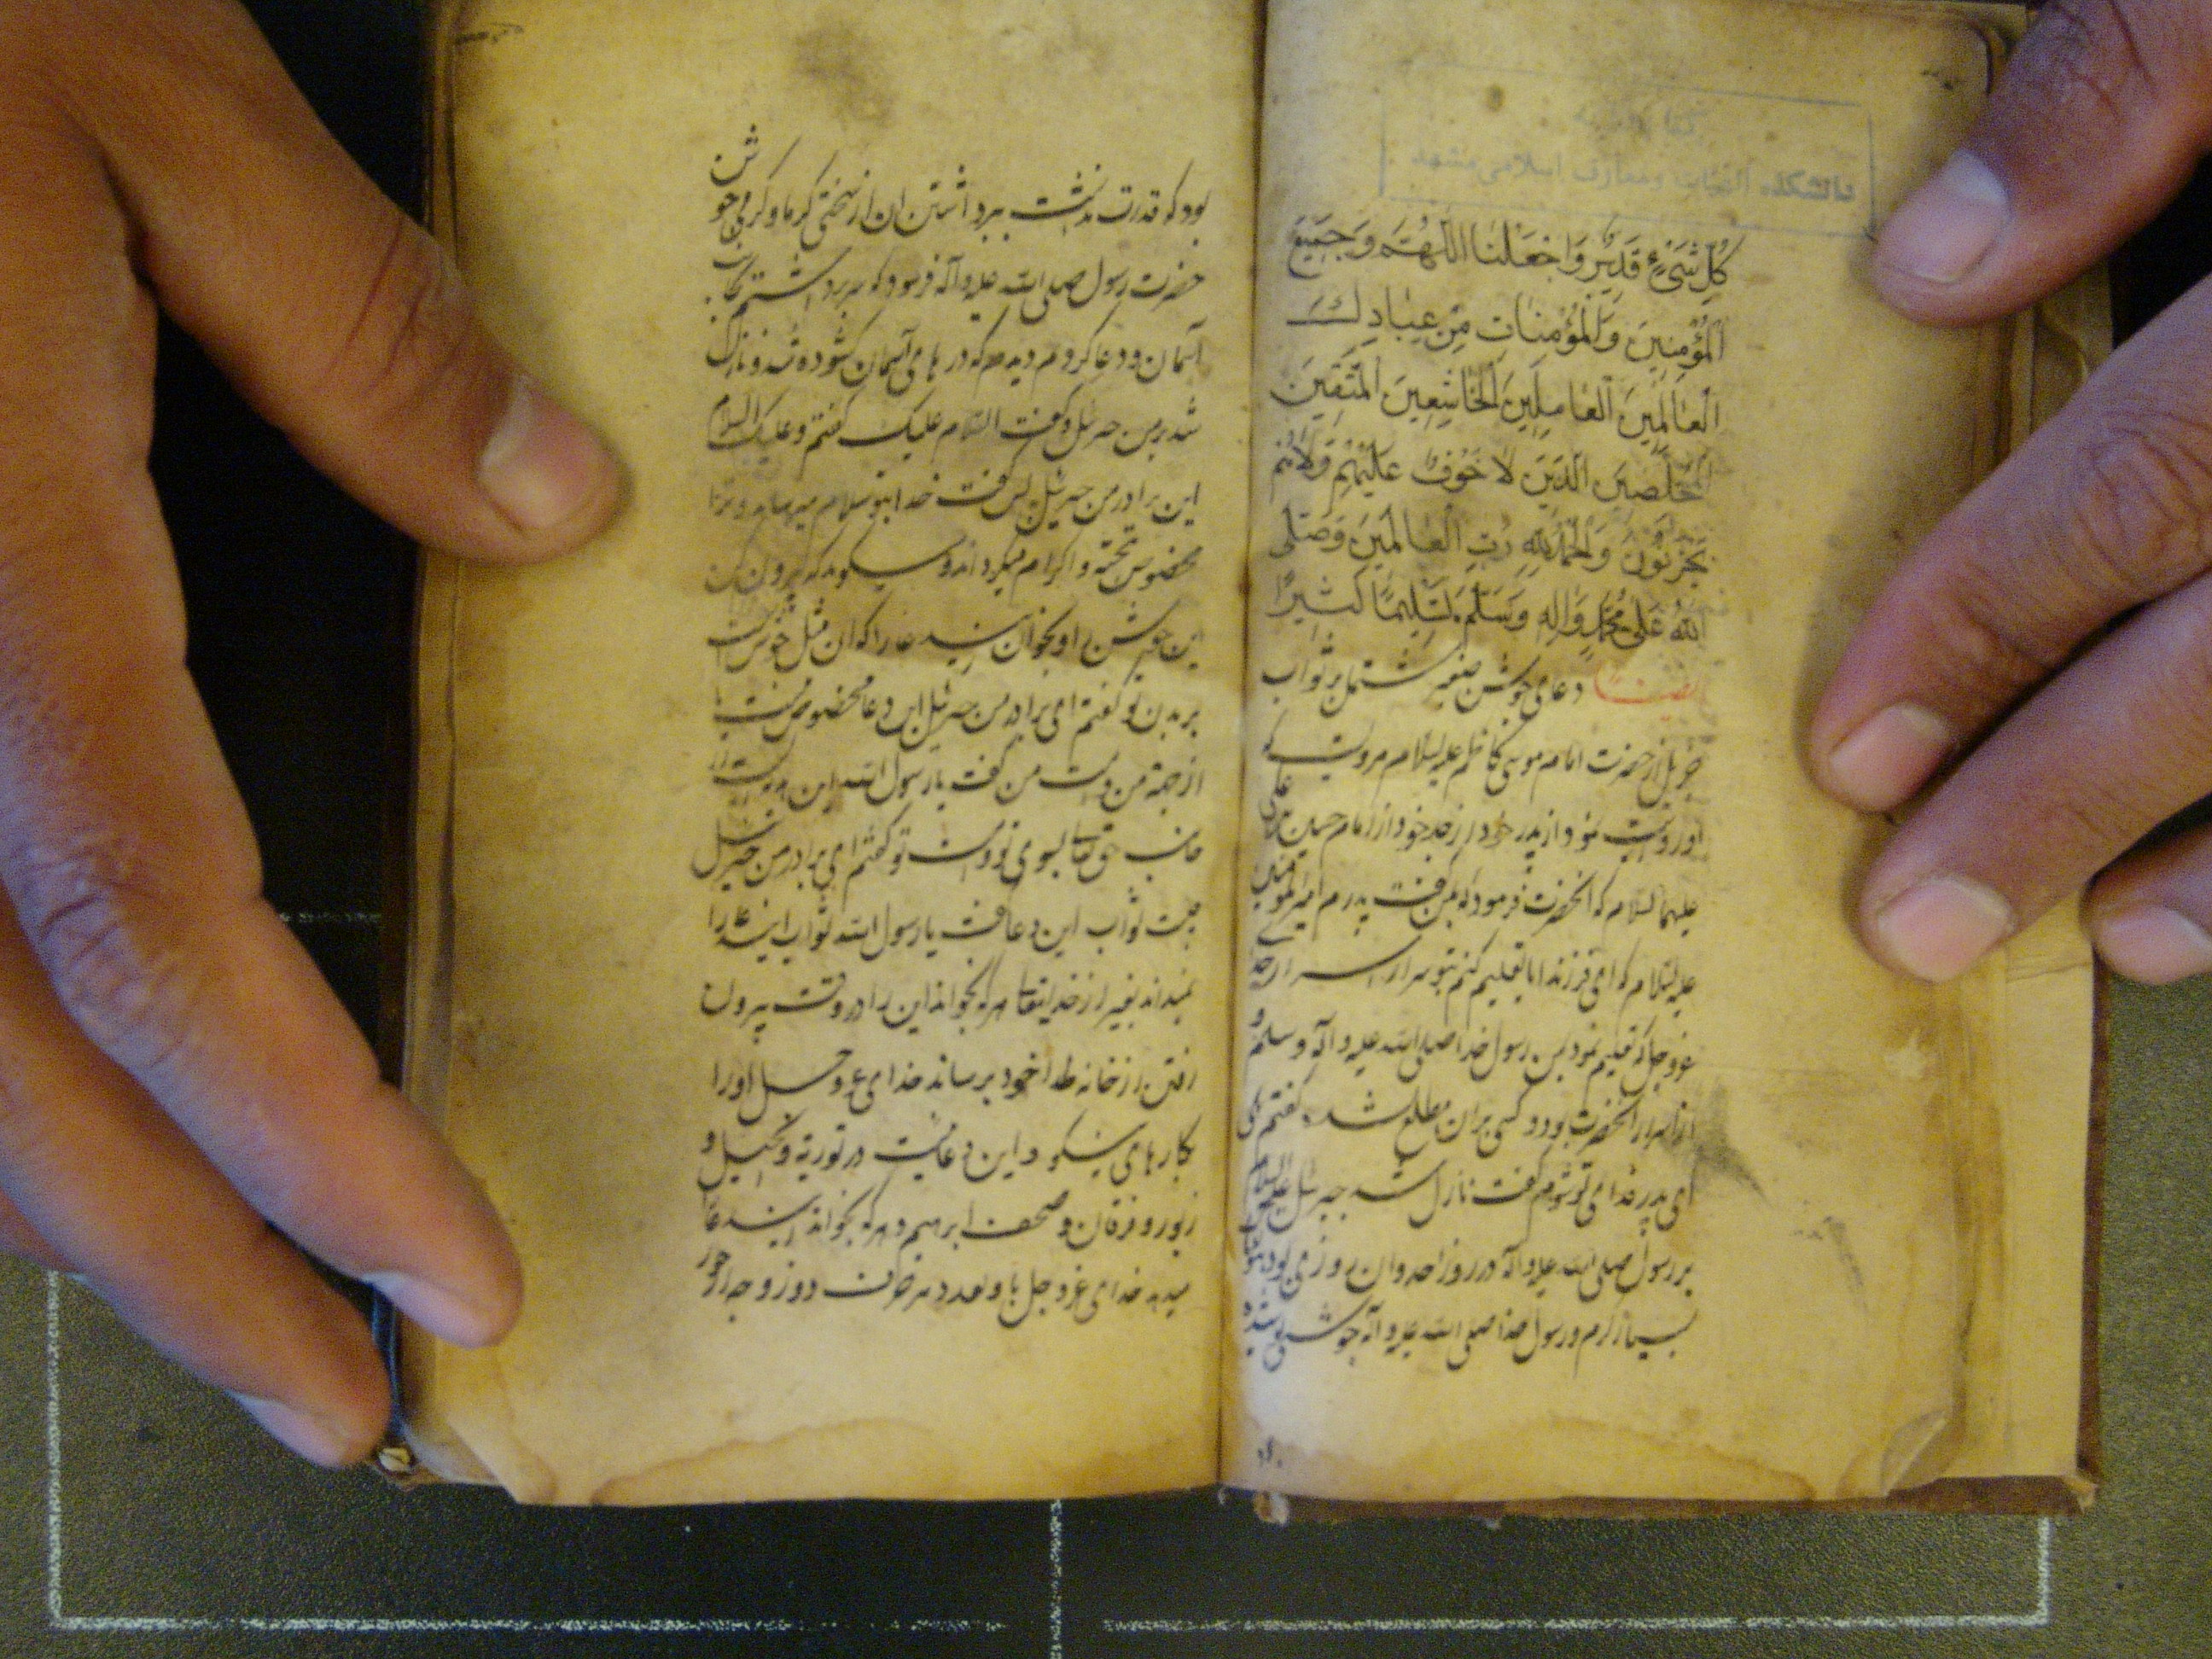 دانشکده الهیات و معارف اسلامی مشهد
كُلِّ شَيْءٍ قَدِيرٌ وَاجْعَلْنَا اللّٰهُمَّ وَجَمِيعَ
الْمُؤْمِنِينَ وَالْمُؤْمِنَاتِ مِنْ عِبَادِكَ
الْعَالِمِينَ الْعَامِلِينَ الْخَاشِعِينَ الْمُتَّقِينَ
الْمُخْلَصِينَ الَّذِينَ لَا خَوْفٌ عَلَيْهِمْ وَلَاهُمْ
يَحْزَنُونَ وَالْحَمْدُ لِلّٰهِ رَبِّ الْعَالَمِينَ وَصَلَّى
اللّٰهُ عَلَى مُحَمَّدٍ وَاٰلِهِ وَسَلَّمَ تَسْلِيمًا كَثِيرًا
ایضا دعای جوشن صغیر مشتمل بر ثواب
جزیل از حضرت امام موسی کاظم علیه السلام مرویست که
او روایت نمود از پدر خود از جد خود از امام حسین بن علی
علیهما السلام که آنحضرت فرمود که بمن گفت پدرم امیر المؤمنین
علیه السلام که ای فرزند ایا تعلیم کنم بتو سر از اسرار خدای
عزوجل که تعلیم نمود بمن رسول خدا صلی الله علیه و آله و سلم و
از اسرار آنحضرت بود و کسی بران مطلع نشده گفتم بلی
ای پدر فدای تو شوم گفت نازل شد جبرئیل علیه السلام
بر رسول صلی الله علیه و آله در روز احد و ان روزی بود
بسیار گرم و رسول خدا صلی الله علیه و آله جوشنی پوشیده
بود که قدرت نداشت ببرداشتن ان از سختی گرما و گرمی جوشن
حضرت رسول صلی الله علیه و آله فرمود که سر برداشتم بجانب
آسمان و دعا کردم دیدم که درهای آسمان گشوده شد و نازل
شد بر من جبرئیل و گفت السلام علیک گفتم و علیک السلام
این برادر من جبرئیل پس گفت خدا بتو سلام میرساند و ترا
مخصوص بتحیة و اکرام میگرداند و میگوید که بیرون کن
این جوشن را و بخوان این دعا را که ان مثل جوشن است
بر بدن تو گفتم ای برادر من جبرئیل این دعا مخصوص منست یا
از جهة من و امت من گفت یا رسول الله این هدیه است از
جانب حق تعالی بسوی تو و امت تو گفتم ای برادر من جبرئیل
چیست ثواب این دعا گفت یا رسول الله ثواب این دعا را
نمیداند بغیر از خدایتعالی هر که بخواند این را در وقت بیرون
رفتن از خانه خود برساند خدای عزوجل او را
بکارهای نیکو و این دعائیست در توریة و انجیل و
زبور و فرقان و صحف ابرهیم و هر که بخواند این دعا
میدهد خدای عزوجل باو بعدد هر حرف دو زوجه از حور